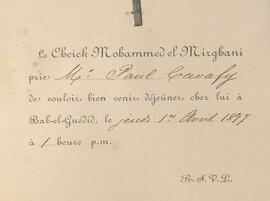 Le Cheick Mohammed el Mirghani
prie Mr. Paul Cavafy
de vouloir bien venir déjeûner chez lui à
Bab-el-Guédid, le jeudi 1er Avril 1897
à 1 heure p.m.
R.S.V.P.